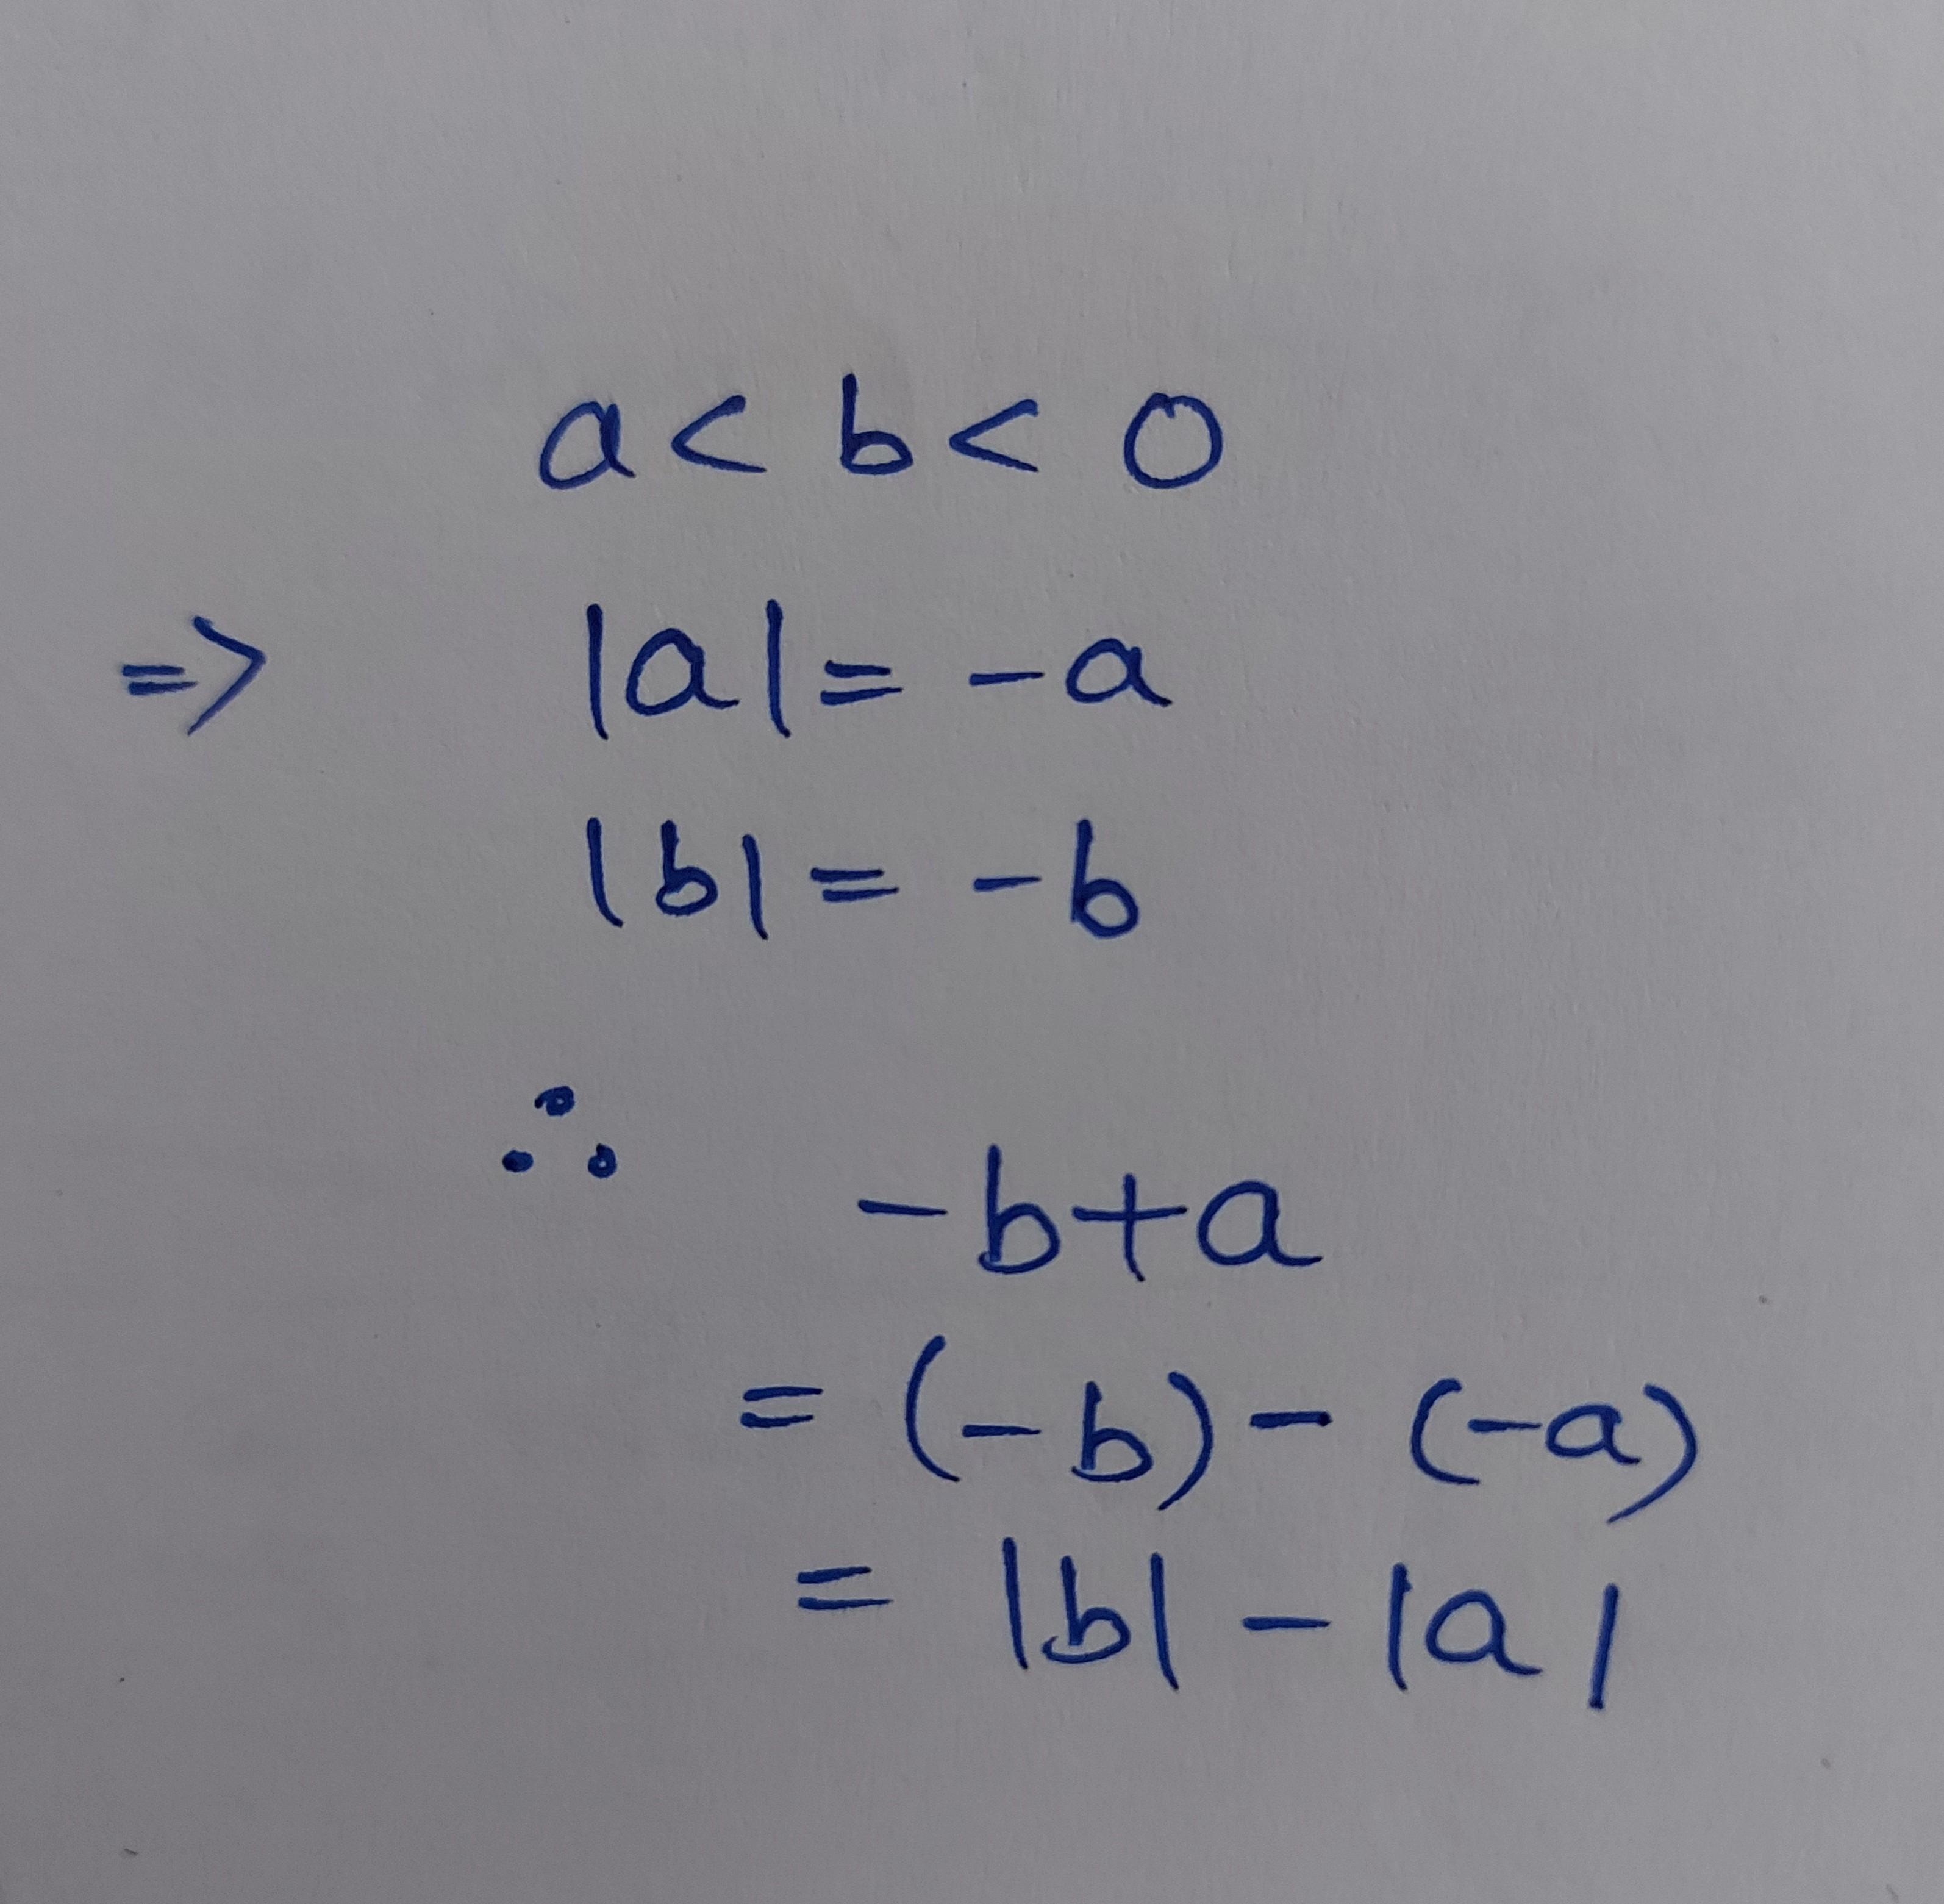 a < b < 0
=> |a| = -a
|b| = -b
∴ -b+a
= (-b) - (-a)
= |b| - |a|